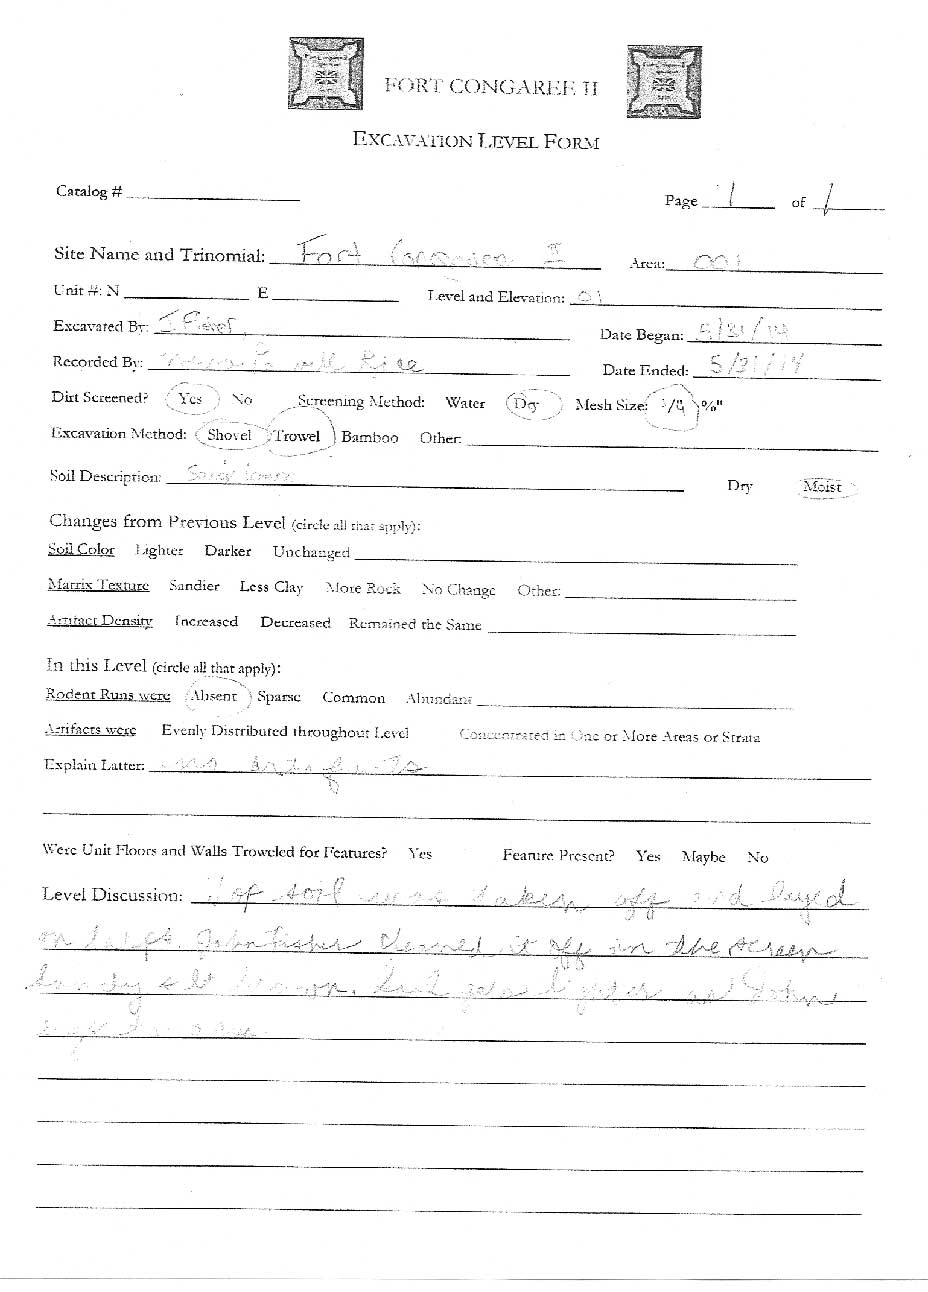 FORT CONGAREE II
EXCAVATION LEVEL FORM
Catalog #
Page 1 of 1
Site Name and Trinomial: Fort Congaree II Area: 001
Unit #: N E Level and Elevation: 01
Excavated By: J. Fisher Date Began: 5/31/14
Recorded By: Rice Date Ended: 5/31/14
Dirt Screened? Yes No Screening Method: Water Dry Mesh Size: 1/4 ⅛"
Excavation Method: Shovel Trowel Bamboo Other:
Soil Description: Sandy loam Dry Moist
Changes from Previous Level (circle all that apply):
Soil Color Lighter Darker Unchanged
Matrix Texture Sandier Less Clay More Rock No Change Other:
Artifact Density Increased Decreased Remained the Same
In this Level (circle all that apply):
Rodent Runs were Absent Sparse Common Abundant
Artifacts were Evenly Distributed throughout Level Concentrated in One or More Areas or Strata
Explain Latter: no artifacts
Were Unit Floors and Walls Troweled for Features? Yes Feature Present? Yes Maybe No
Level Discussion: of soil was taken off and layed
on John Fisher cleaned it off in the screen
Sandy brown. lighter as John